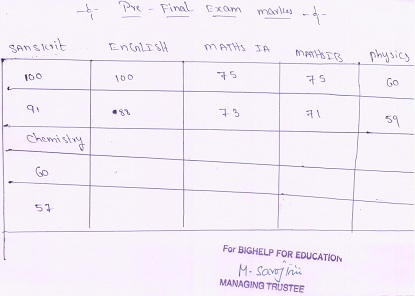 Pre - Final Exam marks
SANSKrit ENGLISH MATHS IA MATHSIB physics
100 100 75 75 60
91 88 73 71 59
Chemistry
60
57
For BIGHELP FOR EDUCATION
M. Sarojini
MANAGING TRUSTEE